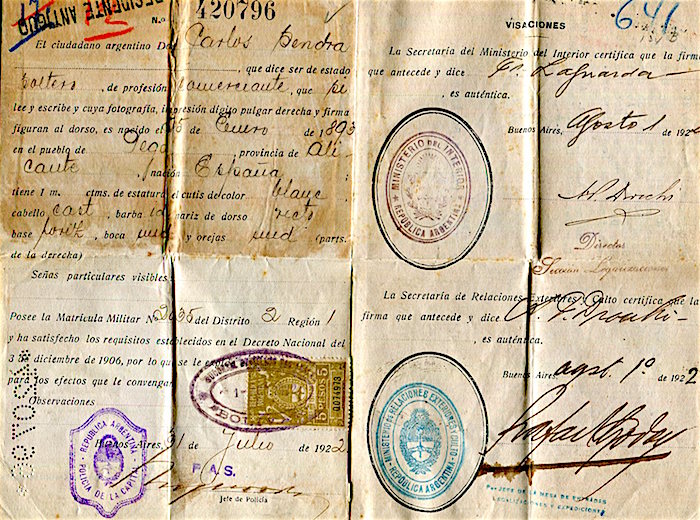 PRESIDENTE ANTIGUO
N.o 420796
El ciudadano argentino Don Carlos Sendra
, que dice ser de estado
soltero, de profesión comerciante, que se
lee y escribe y cuya fotografía, impresión dígito pulgar derecha y firma
figuran al dorso, es nacido el 25 de Enero de 1893
en el pueblo de Ego provincia de Ali
cante, nación España;
tiene 1 m. ctms. de estatura el cutis de color blanc
cabello cast, barba id nariz de dorso recto
base horiz, boca med y orejas med (parts.
de la derecha)
Señas particulares visibles
Posee la Matricula Militar No del Distrito 2 Región 1
y ha satisfecho los requisitos establecidos en el Decreto Nacional del
3 de diciembre de 1906, por lo que se le
para los efectos que le convengan
Observaciones
Buenos Aires, 31 de Julio de 1922
REPUBLICA ARGENTINA
POLICIA DE LA CAPITAL
P.A.S.
Jefe de Policía
VISACIONES
641
La Secretaría del Ministerio del Interior certifica que la firma
que antecede y dice Fs. Laguarda
, es auténtica.
Buenos Aires, Agosto 1 de 192
MINISTERIO DEL INTERIOR
REPÚBLICA ARGENTINA
Director
Sección Legalizaciones
La Secretaría de Relaciones Exteriores y Culto certifica que la
firma que antecede y dice
es auténtica.
Buenos Aires, agst. 1º de 1922
MINISTERIO DE RELACIONES EXTERIORES Y CULTO
REPUBLICA ARGENTINA
Por JEFE DE LA MESA DE ENTRADAS
LEGALIZACIONES Y EXPEDICIONES